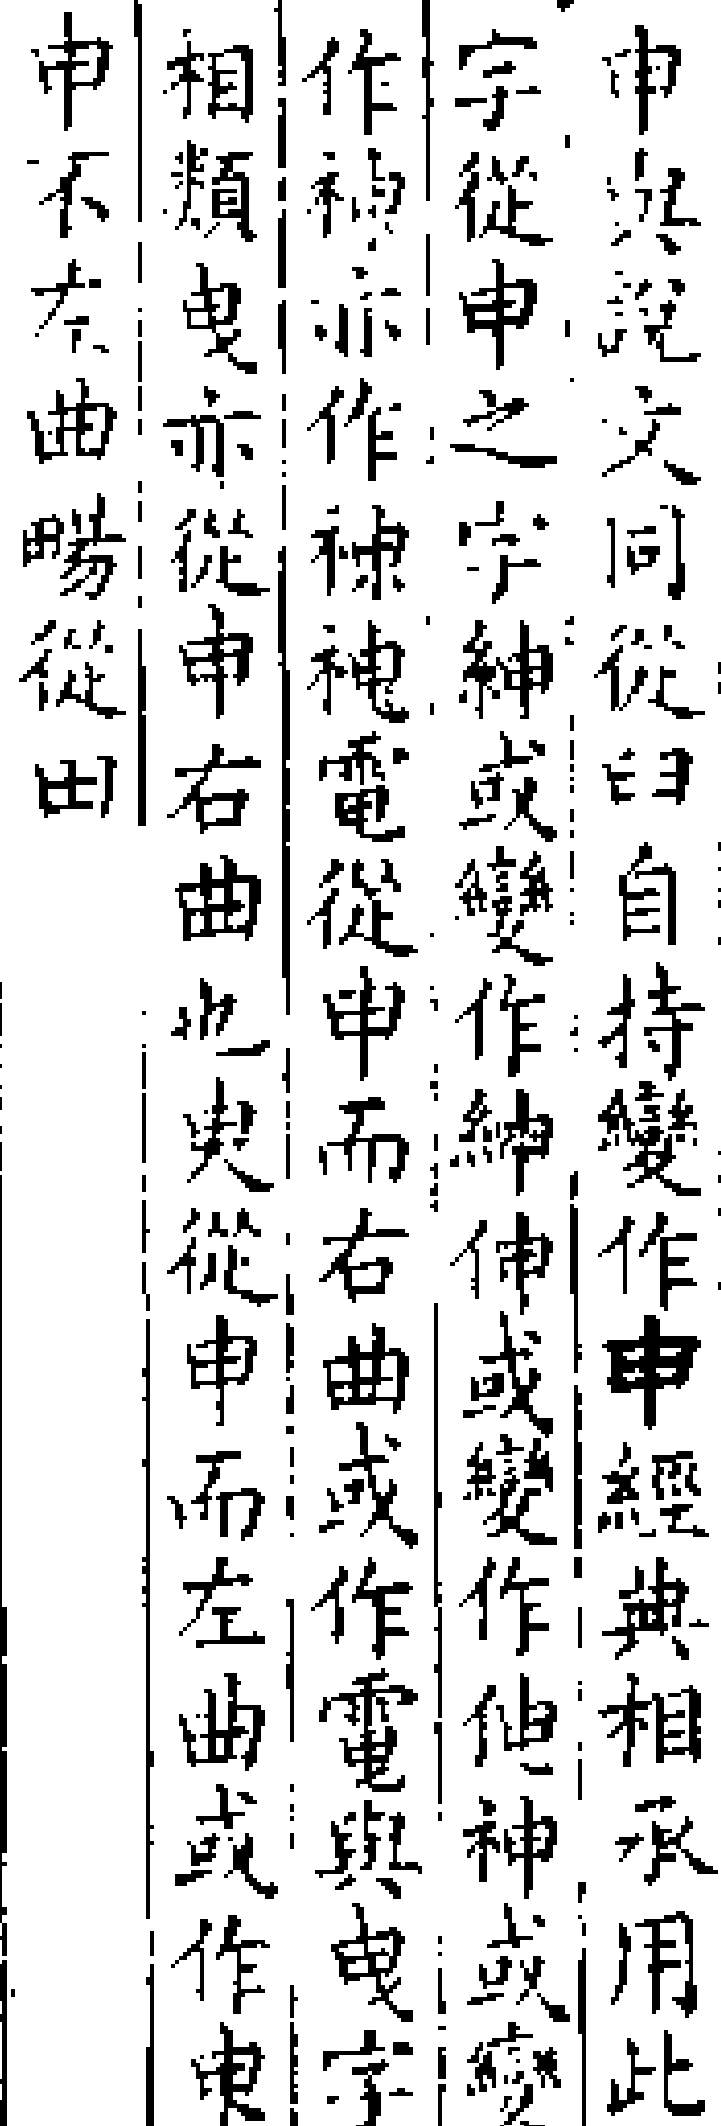 申與說文同從臼自持變作申經典相承用此
字從申之字紳或變作紳伸或變作伷神或變
作神亦作祌神電從申而右曲或作電與曳字
相類曳亦從申右曲也臾從申而左曲或作曳
申不左曲畼從田